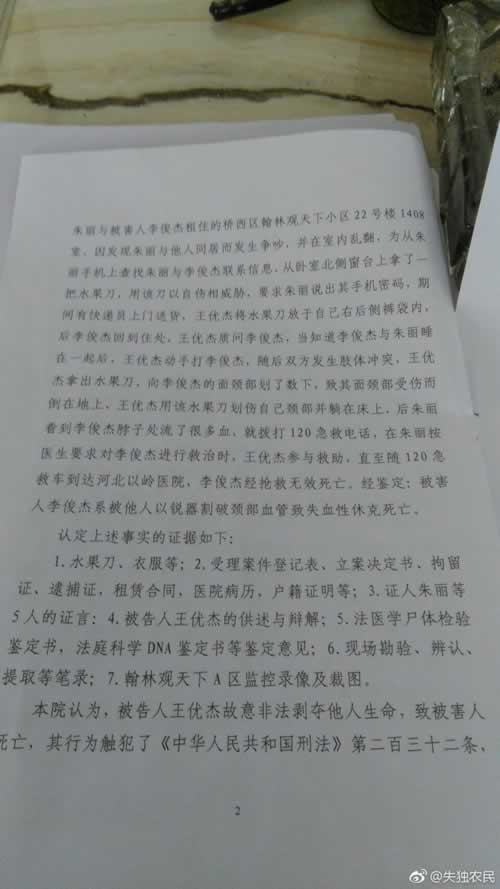 朱丽与被害人李俊杰租住的桥西区翰林观天下小区22号楼1408
室，因发现朱丽与他人同居而发生争吵，并在室内乱翻，为从朱
丽手机上查找朱丽与李俊杰联系信息，从卧室北侧窗台上拿了一
把水果刀，用该刀以自伤相威胁，要求朱丽说出其手机密码，期
间有快递员上门送货，王优杰将水果刀放于自己右后侧裤袋内，
后李俊杰回到住处，王优杰质问李俊杰，当知道李俊杰与朱丽睡
在一起后，王优杰动手打李俊杰，随后双方发生肢体冲突，王优
杰拿出水果刀，向李俊杰的面颈部划了数下，致其面颈部受伤而
倒在地上，王优杰用该水果刀划伤自己颈部并躺在床上，后朱丽
看到李俊杰脖子处流了很多血，就拨打120急救电话，在朱丽按
医生要求对李俊杰进行救治时，王优杰参与救助，直至随120急
救车到达河北以岭医院，李俊杰经抢救无效死亡。经鉴定：被害
人李俊杰系被他人以锐器割破颈部血管致失血性休克死亡。
认定上述事实的证据如下：
1.水果刀、衣服等；2.受理案件登记表、立案决定书、拘留
证、逮捕证，租赁合同，医院病历，户籍证明等；3.证人朱丽等
5人的证言；4.被告人王优杰的供述与辩解；5.法医学尸体检验
鉴定书，法庭科学DNA鉴定书等鉴定意见；6.现场勘验、辨认、
提取等笔录；7.翰林观天下A区监控录像及截图。
本院认为，被告人王优杰故意非法剥夺他人生命，致被害人
死亡，其行为触犯了《中华人民共和国刑法》第二百三十二条、
2
@失独农民